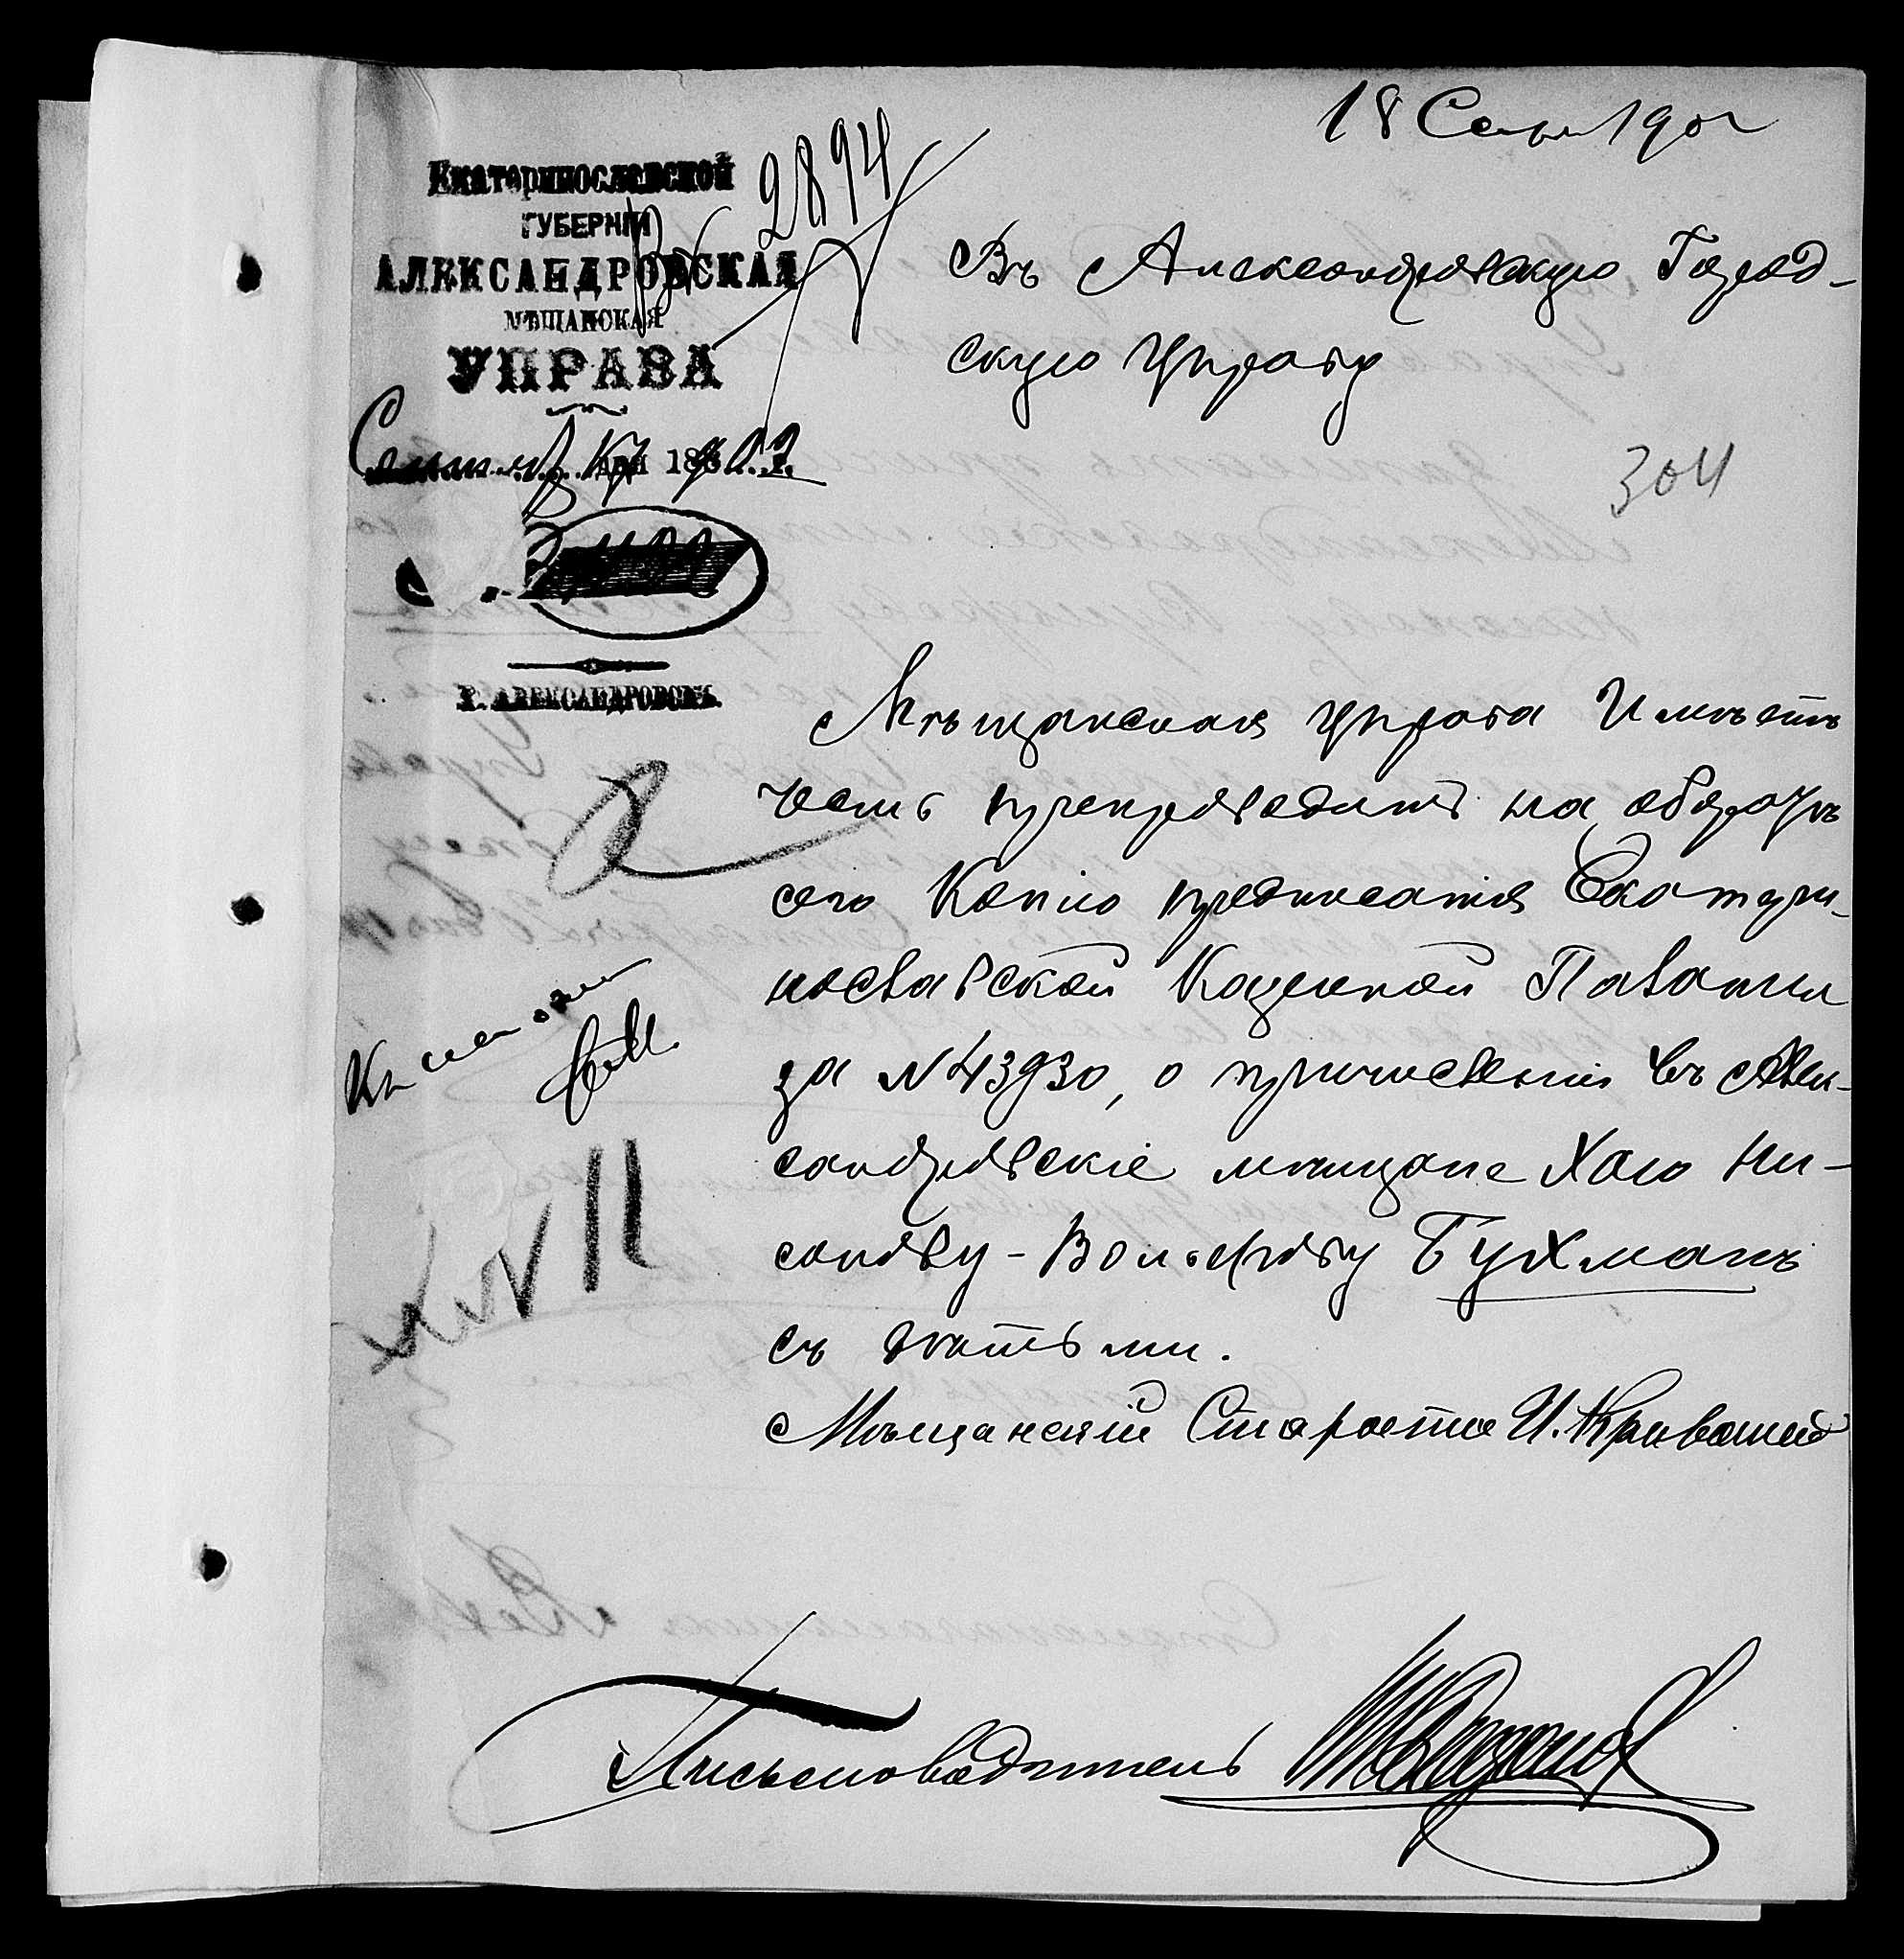 18 Сент 190
2894
Екатеринославской
ГУБЕРНІИ
АЛЕКСАНДРОВСКАЯ
МѢЩАНСКАЯ
УПРАВА
дня 18
Г. АЛЕКСАНДРОВСКЪ.
Въ Александровскую Город-
скую Управу
304
Мѣщанская Управа Имѣетъ
честь препроводить на оборотѣ
сего Копію предписанія Екатери-
нославской Казенной Палаты
за № 43930, о причисленіи въ Алек-
сандровскіе мѣщане Хаю Ни-
сонову-Вольфову Бухманъ
съ дѣтьми.
Мѣщанскій Староста И.
Письмоводитель